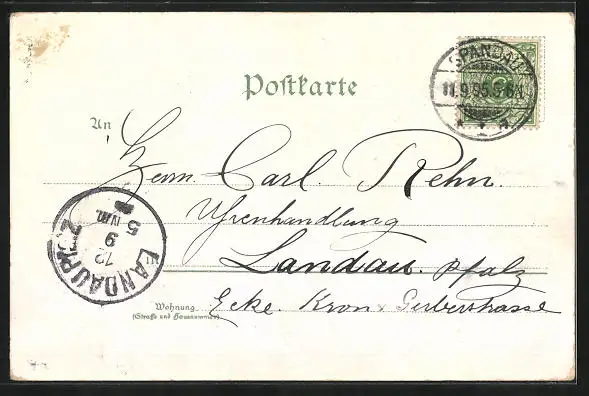 Postkarte
SPANDAU
11.9.95.5-6N.
An
Herrn Carl. Rehn.
Uhrenhandlung
in Landau. Pfalz
Wohnung
(Straße und Hausnummer)
Ecke. Kron & Gerberstrasse
LANDAU PFALZ
12
9
5
N.M.